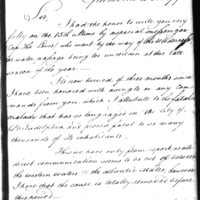 Sir,
I had the honor to write you very
fully on the 15th ultimo by a special messenger
who went by the way of the
the water passage being too uncertain at this late
season of the year
It is now turned of three months since
I have been honored with a single or any com-
mands from you. which I attribute to the fatal
malady that has so long raged in the City of
Philadelphia and proved fatal to so many
thousands of its inhabitants.
There have only from report as all
direct communication seems to be cut off between
the western waters & the atlantic States, however
I hope that the cause is totally removed before
this period